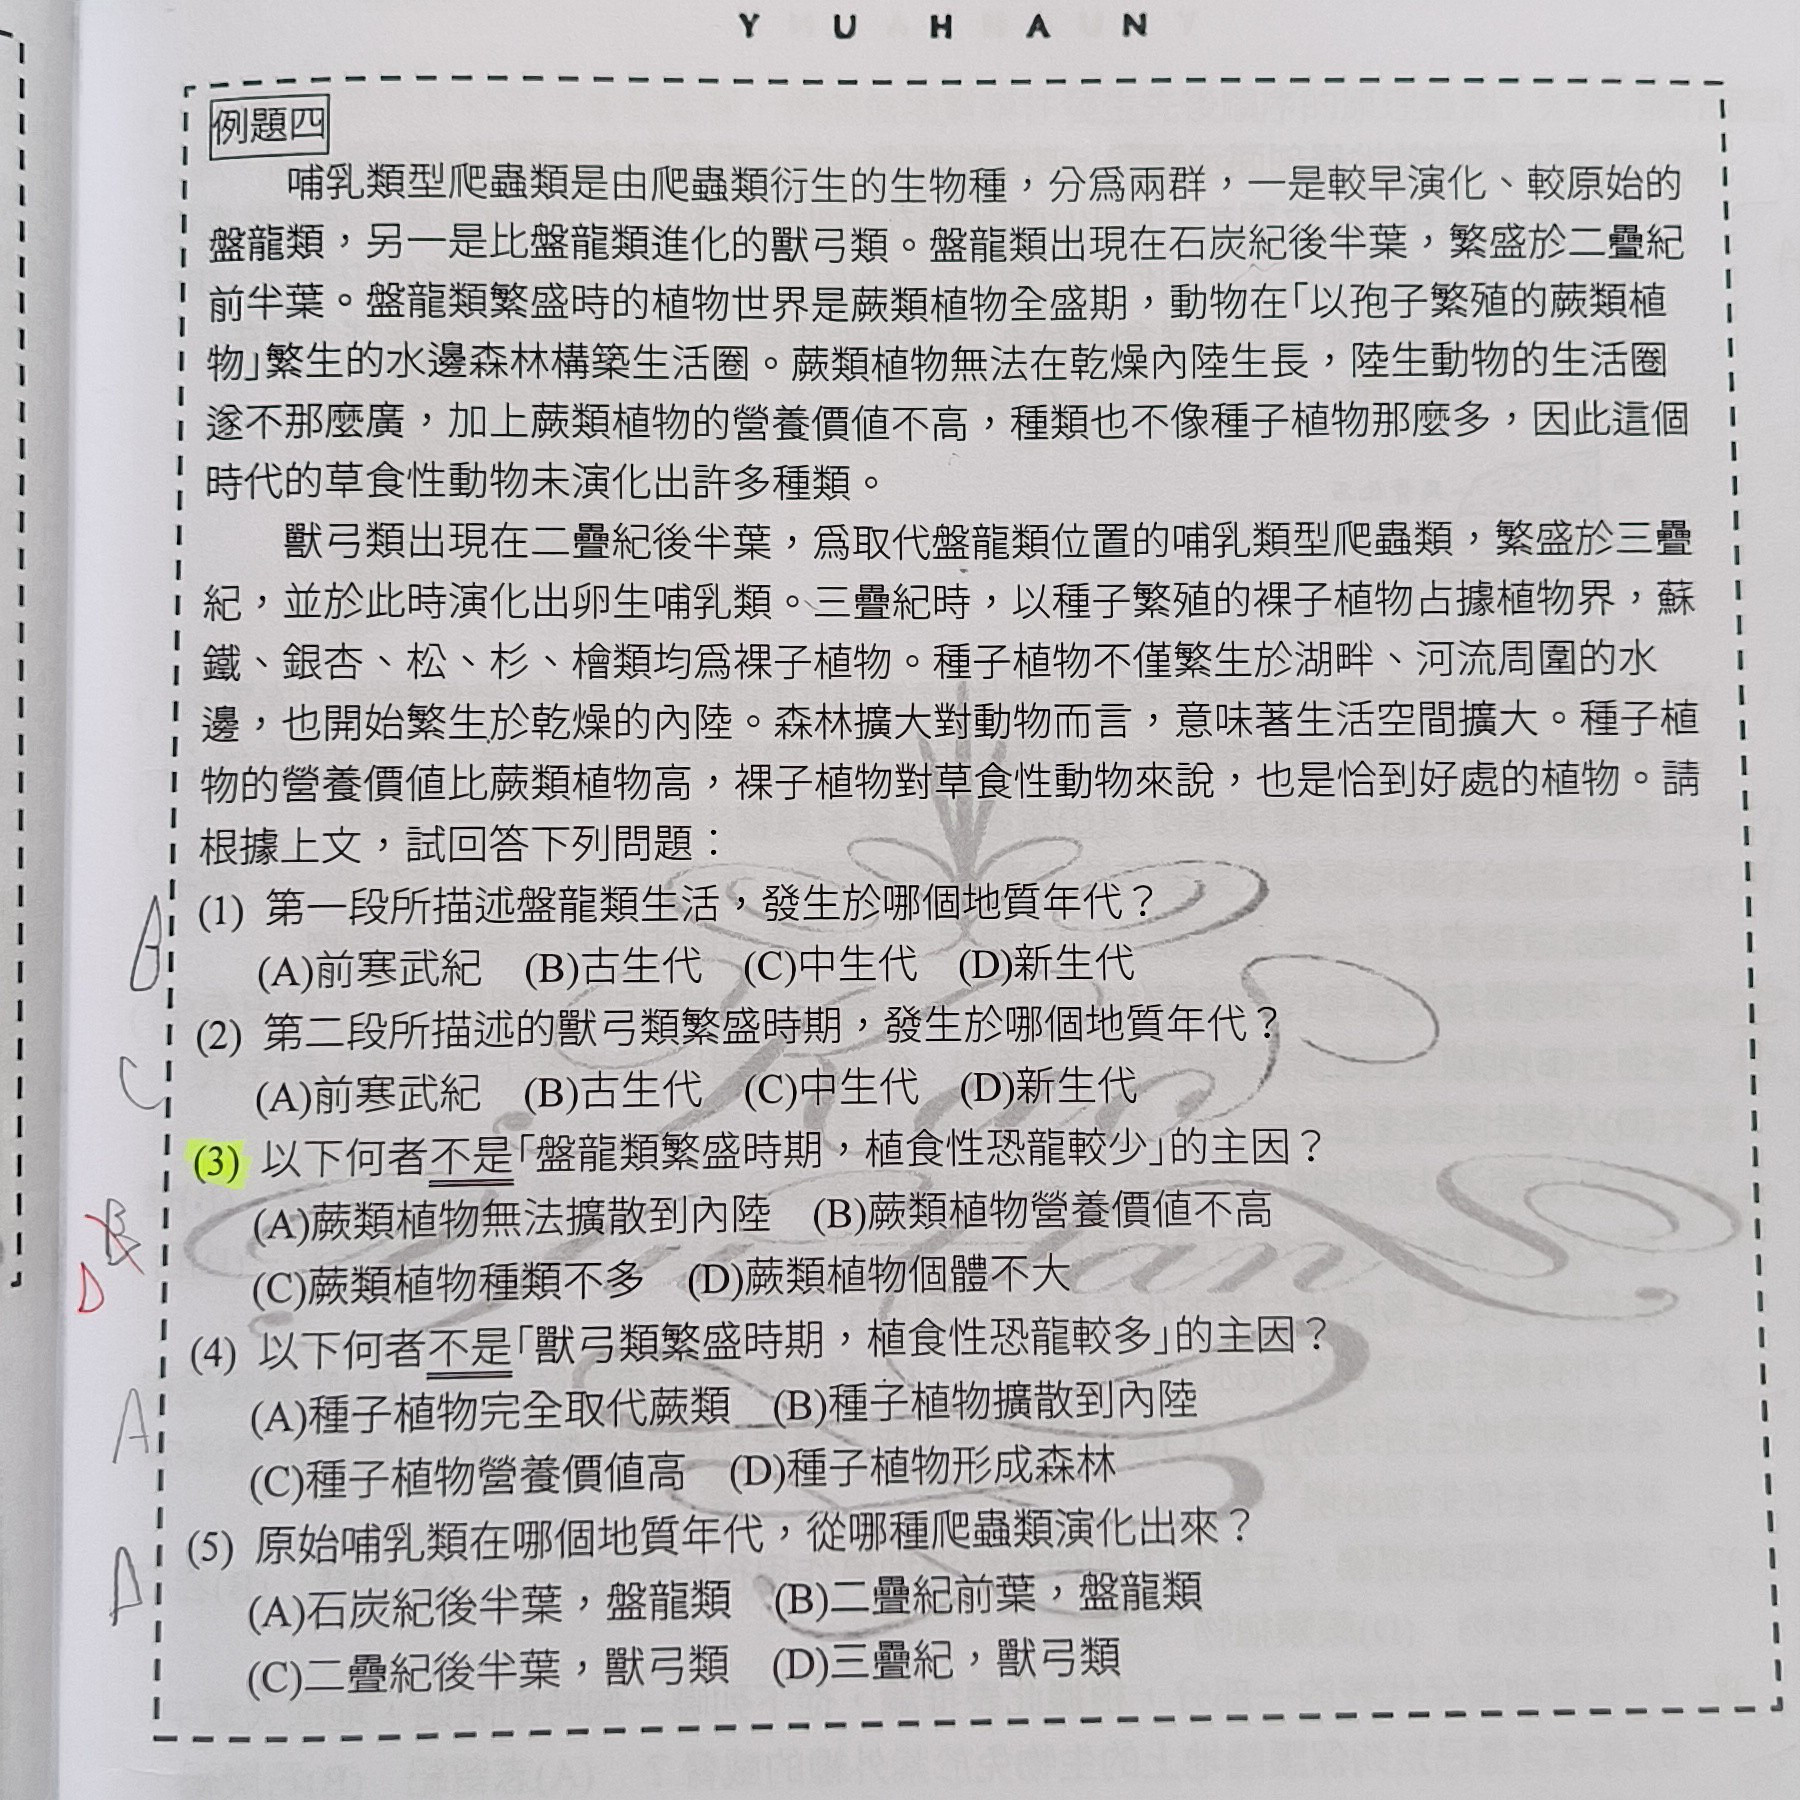 YUHHAUNY
例題四
哺乳類型爬蟲類是由爬蟲類衍生的生物種，分爲兩群，一是較早演化、較原始的
盤龍類，另一是比盤龍類進化的獸弓類。盤龍類出現在石炭紀後半葉，繁盛於二疊紀
前半葉。盤龍類繁盛時的植物世界是蕨類植物全盛期，動物在「以孢子繁殖的蕨類植
物」繁生的水邊森林構築生活圈。蕨類植物無法在乾燥內陸生長，陸生動物的生活圈
遂不那麼廣，加上蕨類植物的營養價值不高，種類也不像種子植物那麼多，因此這個
時代的草食性動物未演化出許多種類。
獸弓類出現在二疊紀後半葉，爲取代盤龍類位置的哺乳類型爬蟲類，繁盛於三疊
紀，並於此時演化出卵生哺乳類。三疊紀時，以種子繁殖的裸子植物占據植物界，蘇
鐵、銀杏、松、杉、檜類均爲裸子植物。種子植物不僅繁生於湖畔、河流周圍的水
邊，也開始繁生於乾燥的內陸。森林擴大對動物而言，意味著生活空間擴大。種子植
物的營養價值比蕨類植物高，裸子植物對草食性動物來說，也是恰到好處的植物。請
根據上文，試回答下列問題：
B (1) 第一段所描述盤龍類生活，發生於哪個地質年代？
(A)前寒武紀 (B)古生代 (C)中生代 (D)新生代
C (2) 第二段所描述的獸弓類繁盛時期，發生於哪個地質年代？
(A)前寒武紀 (B)古生代 (C)中生代 (D)新生代
(3) 以下何者不是「盤龍類繁盛時期，植食性恐龍較少」的主因？
B (A)蕨類植物無法擴散到內陸 (B)蕨類植物營養價值不高
D (C)蕨類植物種類不多 (D)蕨類植物個體不大
(4) 以下何者不是「獸弓類繁盛時期，植食性恐龍較多」的主因？
A (A)種子植物完全取代蕨類 (B)種子植物擴散到內陸
(C)種子植物營養價值高 (D)種子植物形成森林
(5) 原始哺乳類在哪個地質年代，從哪種爬蟲類演化出來？
D (A)石炭紀後半葉，盤龍類 (B)二疊紀前葉，盤龍類
(C)二疊紀後半葉，獸弓類 (D)三疊紀，獸弓類